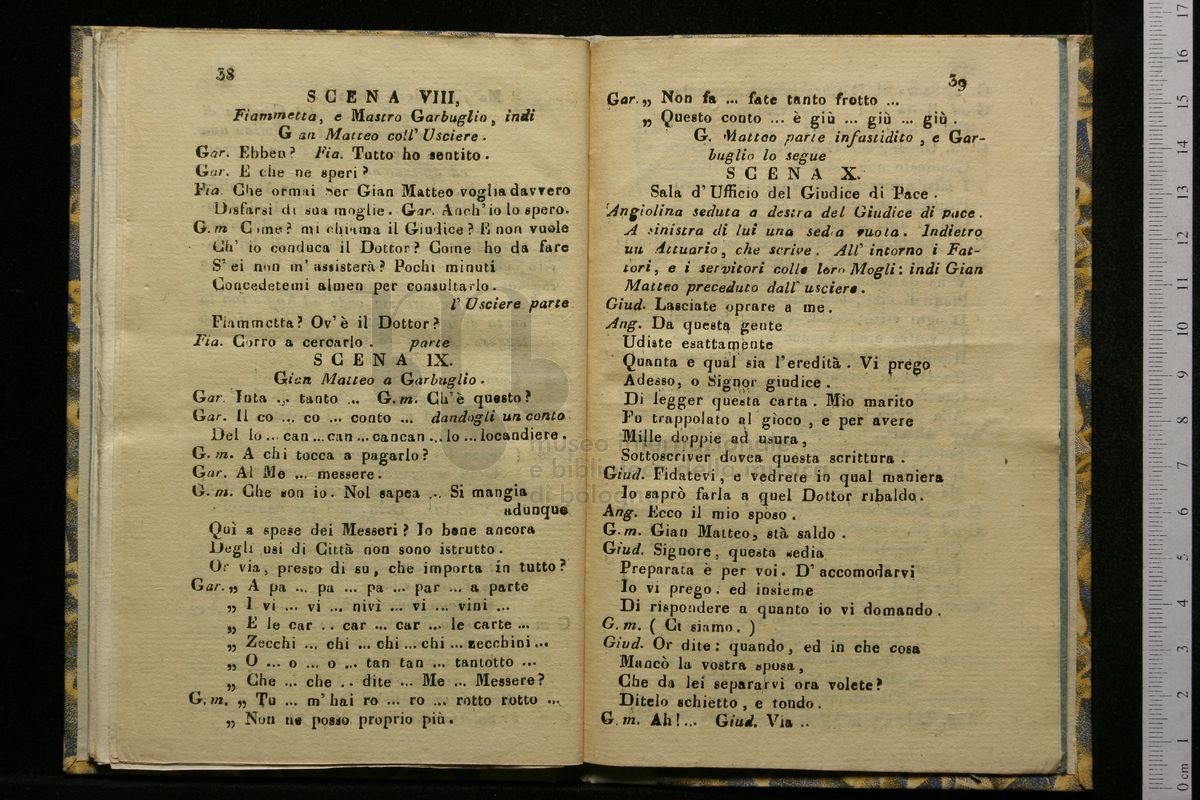 38
SCENA VIII,
Fiammetta, e Mastro Garbuglio, indi
G an Matteo coll' Usciere.
Gar. Ebben? Fia. Tutto ho sentito.
Gar. E che ne speri?
Fia. Che ormai Ser Gian Matteo voglia davvero
Disfarsi di sua moglie. Gar. Anch' io lo spero.
G.m Come? mi chiama il Giudice? E non vuole
Ch' io conduca il Dottor? Come ho da fare
S' ei non m' assisterà? Pochi minuti
Concedetemi almen per consultarlo.
l' Usciere parte
Fiammetta? Ov' è il Dottor?
Fia. Corro a cercarlo. parte
SCENA IX.
Gian Matteo a Garbuglio.
Gar. Tnta ... tanto ... G.m. Ch'è questo?
Gar. Il co ... co ... conto ... dandogli un conto
Del lo ... can ... can ... cancan ... lo ... locandiere.
G.m. A chi tocca a pagarlo?
Gar. Al Me ... messere.
G.m. Che son io. Nol sapea ... Si mangia
adunque
Quì a spese dei Messeri? Io bene ancora
Degli usi di Città non sono istrutto.
Or via, presto di su, che importa in tutto?
Gar. „ A pa ... pa ... pa ... par ... a parte
„ I vi ... vi ... nivì ... vi ... vini ...
„ E le car .. car ... car ... le carte ...
„ Zecchi ... chi ... chi ... chi ... zecchini ...
„ O ... o ... o ... tan tan ... tantotto ...
„ Che ... che .. dite ... Me ... Messere?
G.m. „ Tu ... m' hai ro ... ro ... rotto rotto ...
„ Non ne posso proprio più.
39
Gar. „ Non fa ... fate tanto frotto ...
„ Questo conto ... è giù ... giù ... giù.
G. Matteo parte infastidito, e Gar-
buglio lo segue
SCENA X.
Sala d' Ufficio del Giudice di Pace.
Angiolina seduta a destra del Giudice di pace.
A sinistra di lui una sedia vuota. Indietro
un Attuario, che scrive. All' intorno i Fat-
tori, e i servitori colle loro Mogli: indi Gian
Matteo preceduto dall' usciere.
Giud. Lasciate oprare a me.
Ang. Da questa gente
Udiste esattamente
Quanta e qual sia l'eredità. Vi prego
Adesso, o Signor giudice.
Di legger questa carta. Mio marito
Fu trappolato al gioco, e per avere
Mille doppie ad usura,
Sottoscriver dovea questa scrittura.
Giud. Fidatevi, e vedrete in qual maniera
Io saprò farla a quel Dottor ribaldo.
Ang. Ecco il mio sposo.
G.m. Gian Matteo, stà saldo.
Giud. Signore, questa sedia
Preparata è per voi. D' accomodarvi
Io vi prego. ed insieme
Di rispondere a quanto io vi domando.
G.m. ( Ci siamo. )
Giud. Or dite: quando, ed in che cosa
Mancò la vostra sposa,
Che da lei separarvi ora volete?
Ditelo schietto, e tondo.
G.m. Ah!... Giud. Via ..